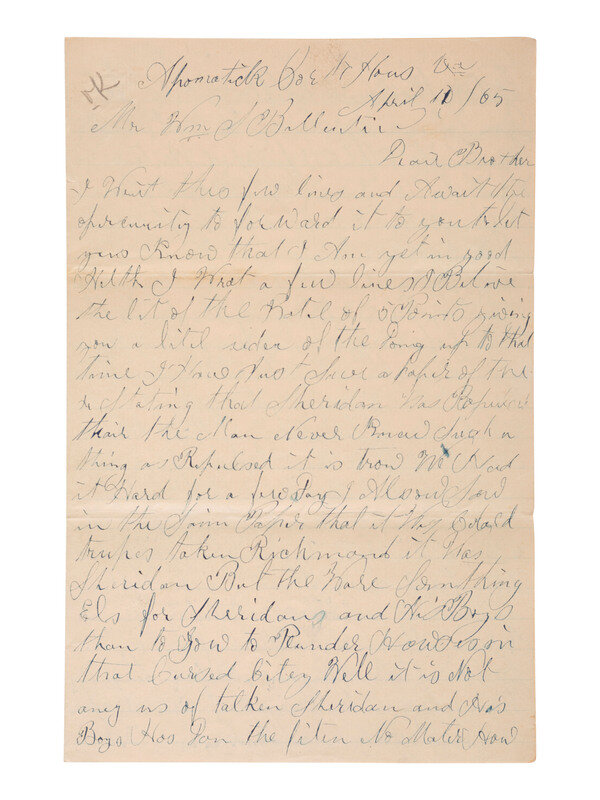 MK
Apomatick Coert Hous Va
April 10 / 65
Mr Wm S Ballentine
Dear Brother
I Writ this few lines and Await the
opercunity to forward it to you to let
you Know that I Am yet in good
Hilth I Wrat a few lines I Belive
the lit of the Batel of 5 Points giving
you a litel ider of the going up to that
time I Have Just Saw a Paper of the
Stating that Sheridan Was Repulsed
thair the Man Never Knew Such a
thing as Repulsed it is trow We Had
it Hard for a few Days I Alsow Saw
in the Saim Paper that it Was
trupes taken Richmond it Was
Sheridan But the Ware Somthing
Els for Sheridan and His Boys
than to Gow to Plunder Howses in
that Cursed Citey Well it is Not
any us of talken Sheridan and His
Boys Has Don the fiten No Mater How